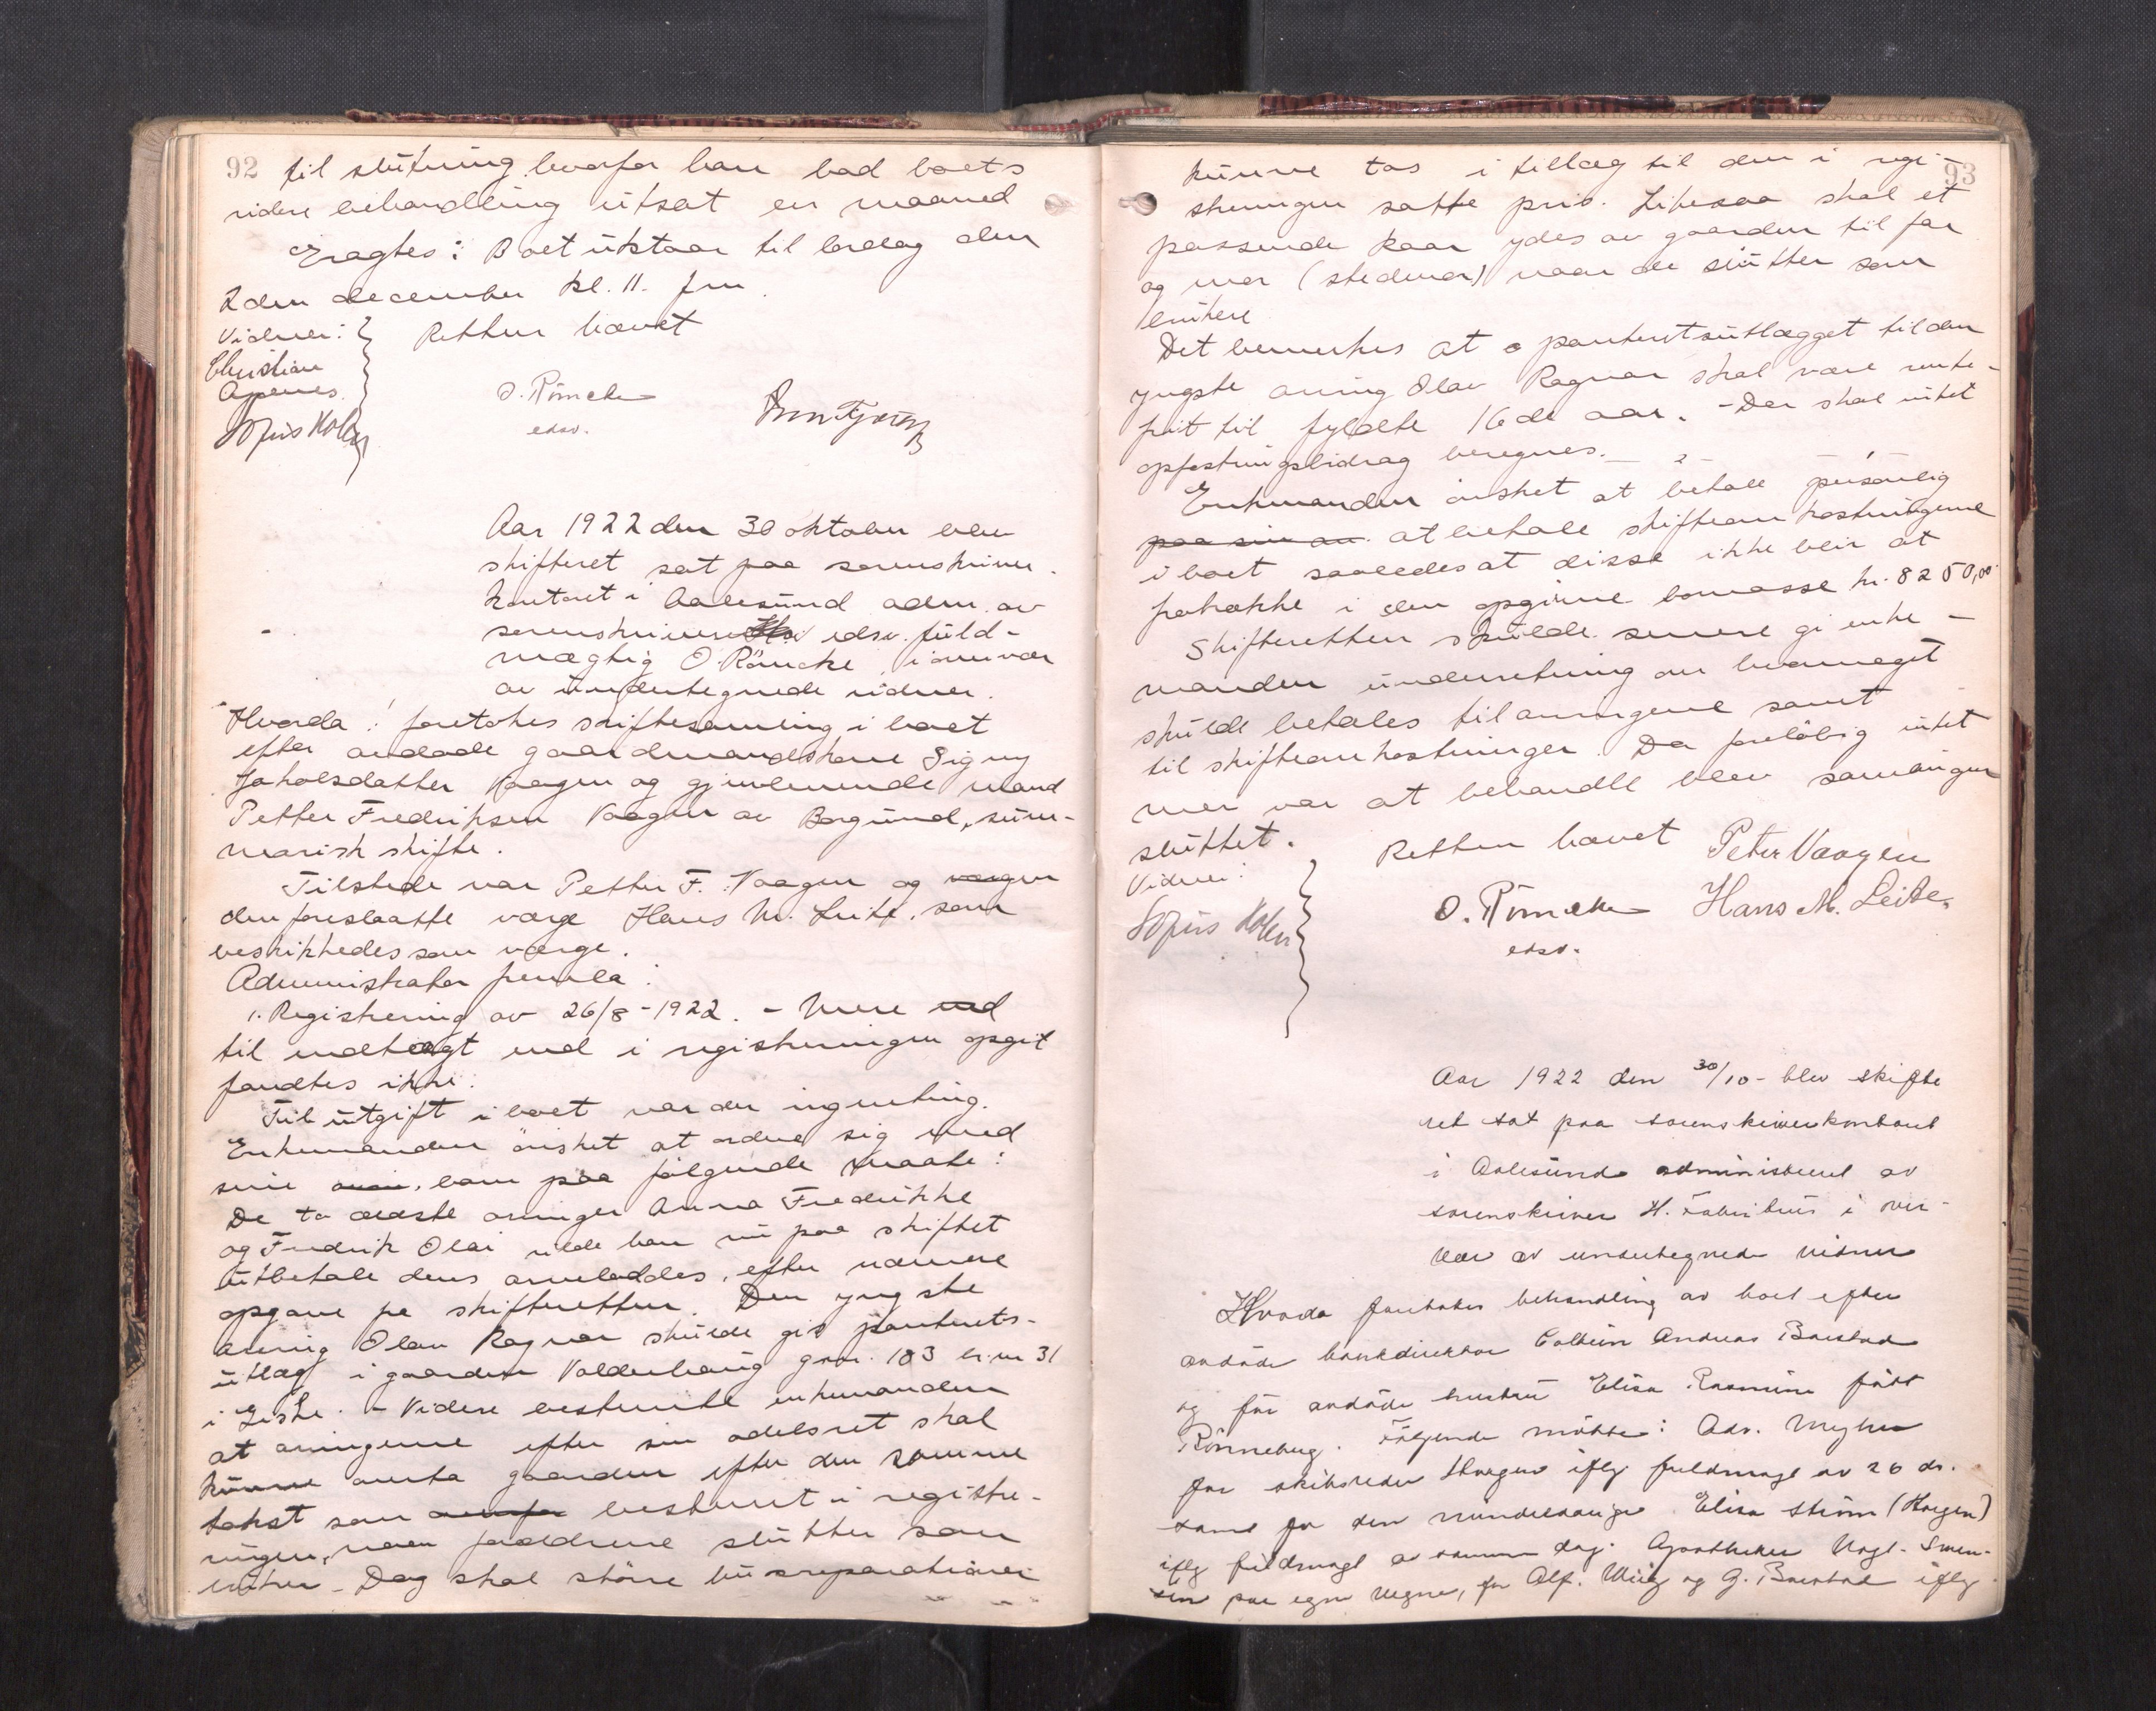 92
til slutning hvorfor han bad boets
videre behandling utsat en maaned
Eragtes: Boet utstaar til lørdag den
2den december kl. 11. fm.
Vidner: Retten hævet
Christian
Aspenes
O. Römcke
edsv.
Sofus Holm
Aar 1922 den 30 oktober blev
skifteret sat paa sorenskriver
kontoret i Aalesund adm. av
sorenskriverens edsv. fuld-
mægtig O Römcke i overvær
av undertegnede vidner.
Hvorda: foretokes skiftesamling i boet
efter avdøde gaardmandskone Signy
Jakobsdatter Vaagen og gjenlevende mand
Petter Fredriksen Vaagen av Borgund, sum-
marisk skifte.
Tilstede var Petter F. Vaagen og vergen
den foreslaatte verge Hans M. Leite, som
beskikkedes som verge.
Administrator fremla:
1. Registrering av 26/8-1922. - Mere end
til indtægt end i registreringen opgit
fandtes ikke.
Til utgift i boet var der ingenting.
Enkemanden ønsket at ordne sig med
sine barn paa følgende maate:
De to ældste arvinger Anna Fredrikke
og Fredrik Olai vilde han nu paa skiftet
utbetale dens arvelodder, efter nærmere
opgave fra skifteretten. Den yngste
arving Olav Ragnar skulde gis panterets-
utlæg i gaarden Valderhaug gnr. 183 br.nr 31
i Giske. - Videre bestemte enkemanden
at arvingerne efter sin odelsret skal
kunne overta gaarden efter den samme
takst som bestemt i registre-
ringen, naar forældrene slutter som
brukere - Dog skal større husreparationer
93
kunne tas i tillæg til den i regi-
streringen satte pris. Likesaa skal et
passende kaar ydes av gaarden til far
og mor (stedmor) naar de slutter som
brukere
Det bemerkes at panteretsutlægget til den
yngste arving Olav Ragnar skal være rente-
frit til fyldte 16de aar. - Der skal intet
opfostringsbidrag beregnes.
Enkemanden ønsket at betale personlig
paa sin at betale skifteomkostningerne
i boet saaledes at disse ikke blir at
fratrække i den opgivne bomasse kr. 8250,00
Skifteretten skulde senere gi enke-
manden underretning om hvormeget
skulde betales til arvingene samt
til skifteomkostninger. Da foreløbig intet
mer var at behandle blev samlingen
sluttet.
Retten hævet Peter Vaagen
Vidner:
O. Römcke Hans M. Leite.
edsv.
Sofus Holm
Aar 1922 den 30/10 - blev skifte
ret sat paa sorenskriverkontoret
i Aalesund administreret av
sorenskriver H. Fabritius i over-
vær av undertegnede vidner
Hvorda foretokes behandling av boet efter
avdøde bankdirektør Andreas
og før avdøde hustru Elisa Rasmine født
Rönneberg. Følgende møtte: Adv.
for skibsreder iflg fuldmagt av 26 ds.
samt for den mindreaarige Elisa Strøm
iflg fuldmagt av samme dag. Apotheker
sen paa egne vegne, for Alf. og G. iflg